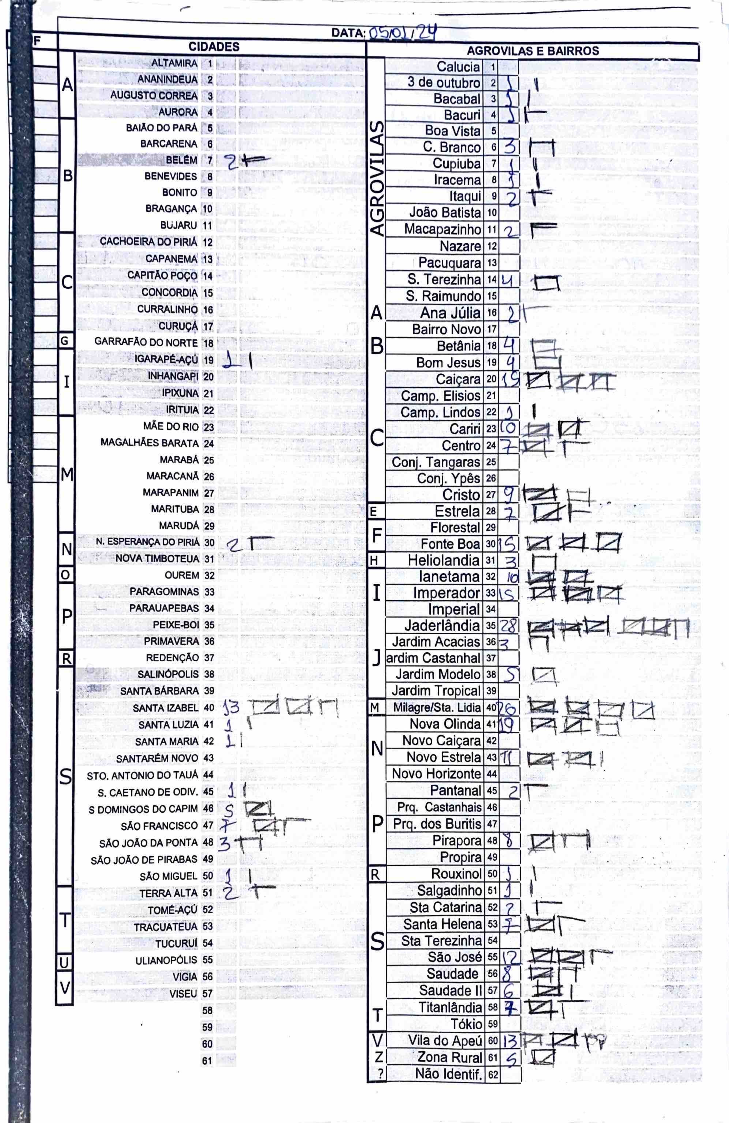 DATA: 05/01/24
F
CIDADES
A
ALTAMIRA 1
ANANINDEUA 2
AUGUSTO CORREA 3
AURORA 4
B
BAIÃO DO PARÁ 5
BARCARENA 6
BELÉM 7 2
BENEVIDES 8
BONITO 9
BRAGANÇA 10
BUJARU 11
C
CACHOEIRA DO PIRIÁ 12
CAPANEMA 13
CAPITÃO POÇO 14
CONCORDIA 15
CURRALINHO 16
CURUÇÁ 17
G
GARRAFÃO DO NORTE 18
I
IGARAPÉ-AÇÚ 19 1
INHANGAPI 20
IPIXUNA 21
IRITUIA 22
M
MÃE DO RIO 23
MAGALHÃES BARATA 24
MARABÁ 25
MARACANÃ 26
MARAPANIM 27
MARITUBA 28
MARUDÁ 29
N
N. ESPERANÇA DO PIRIÁ 30 2
NOVA TIMBOTEUA 31
O
OUREM 32
P
PARAGOMINAS 33
PARAUAPEBAS 34
PEIXE-BOI 35
PRIMAVERA 36
R
REDENÇÃO 37
S
SALINÓPOLIS 38
SANTA BÁRBARA 39
SANTA IZABEL 40 13
SANTA LUZIA 41 1
SANTA MARIA 42 1
SANTARÉM NOVO 43
STO. ANTONIO DO TAUÁ 44
S. CAETANO DE ODIV. 45 1
S DOMINGOS DO CAPIM 46 5
SÃO FRANCISCO 47 7
SÃO JOÃO DA PONTA 48 3
SÃO JOÃO DE PIRABAS 49
SÃO MIGUEL 50 1
T
TERRA ALTA 51 2
TOMÉ-AÇÚ 52
TRACUATEUA 53
TUCURUÍ 54
U
ULIANÓPOLIS 55
V
VIGIA 56
VISEU 57
58
59
60
61
AGROVILAS E BAIRROS
AGROVILAS
Calucia 1
3 de outubro 2 1
Bacabal 3 1
Bacuri 4
Boa Vista 5
C. Branco 6 3
Cupiuba 7 1
Iracema 8 1
Itaqui 9 2
João Batista 10
Macapazinho 11 2
Nazare 12
Pacuquara 13
S. Terezinha 14 4
S. Raimundo 15
A
Ana Júlia 16 2
B
Bairro Novo 17
Betânia 18 4
Bom Jesus 19 4
C
Caiçara 20 15
Camp. Elisios 21
Camp. Lindos 22 1
Cariri 23 10
Centro 24 7
Conj. Tangaras 25
Conj. Ypês 26
Cristo 27 9
E
Estrela 28 7
F
Florestal 29
Fonte Boa 30 15
H
Heliolandia 31 3
I
Ianetama 32 10
Imperador 33 15
Imperial 34
J
Jaderlândia 35 28
Jardim Acacias 36 3
ardim Castanhal 37
Jardim Modelo 38 5
Jardim Tropical 39
M
Milagre/Sta. Lidia 40 20
N
Nova Olinda 41 19
Novo Caiçara 42
Novo Estrela 43 11
Novo Horizonte 44
P
Pantanal 45 2
Prq. Castanhais 46
Prq. dos Buritis 47
Pirapora 48 8
Propira 49
R
Rouxinol 50 1
S
Salgadinho 51 1
Sta Catarina 52 2
Santa Helena 53 7
Sta Terezinha 54
São José 55 12
Saudade 56 8
Saudade II 57 6
T
Titanlândia 58 7
Tókio 59
V
Vila do Apeú 60 13
Z
Zona Rural 61 5
?
Não Identif. 62